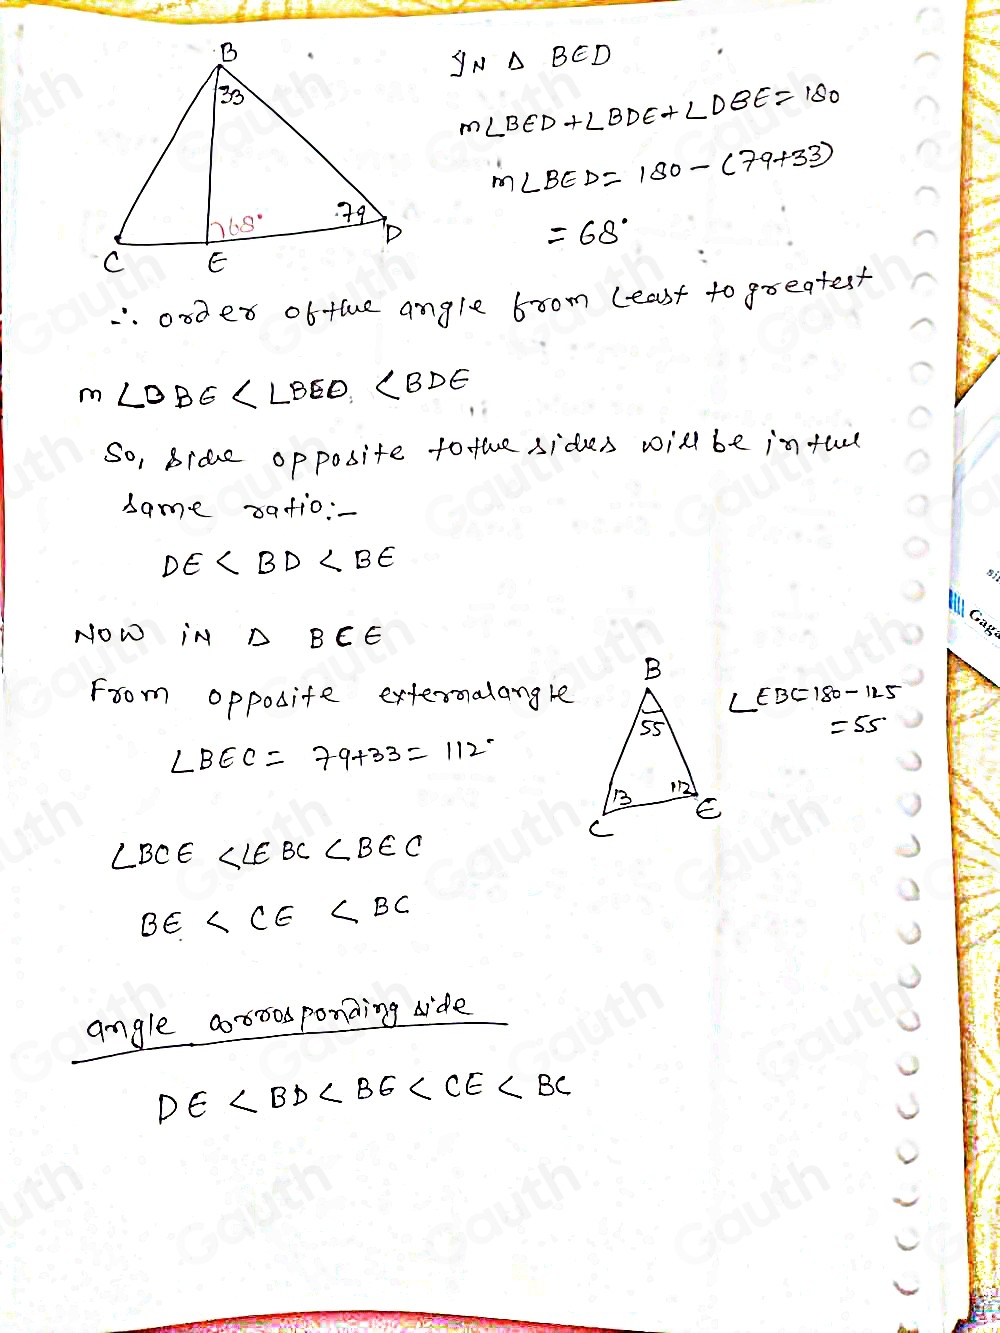 B
33
768°
79
D
C
E
IN Δ BED
m∠BED+∠BDE+∠DBE=180
m∠BED= 180-(79+33)
= 68°
∴ order of the angle from Least to greatest
m ∠DBE < ∠BED < BDE
So, side opposite to the sides will be in the
same ratio:-
DE < BD < BE
NOW IN Δ BCE
From opposite external angle
∠BEC = 79+33 = 112°
B
55
13
112
C
E
∠EBC=180-125
=55
∠BCE <∠EBC <BEC
BE < CE < BC
angle corrosponding side
DE < BD < BE < CE < BC
Gauth